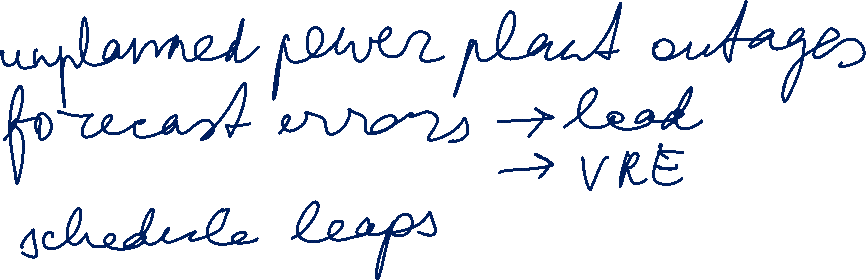 unplanned power plant outages
forecast errors → load
→ VRE
schedule leaps